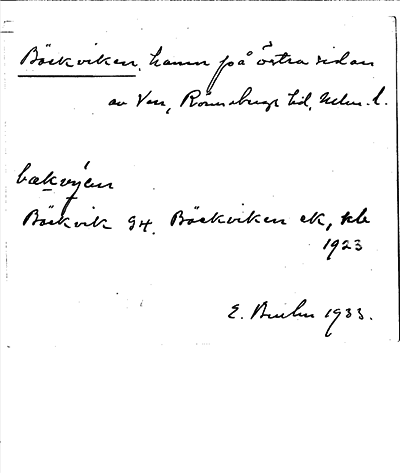 Bäckviken, hamn på östra sidan
av Ven, Rönnebergs hd, Malm. l.
bækvíen
Bäckvik g4. Bäckviken ek, kb
1923
E. Bruhn 1933.